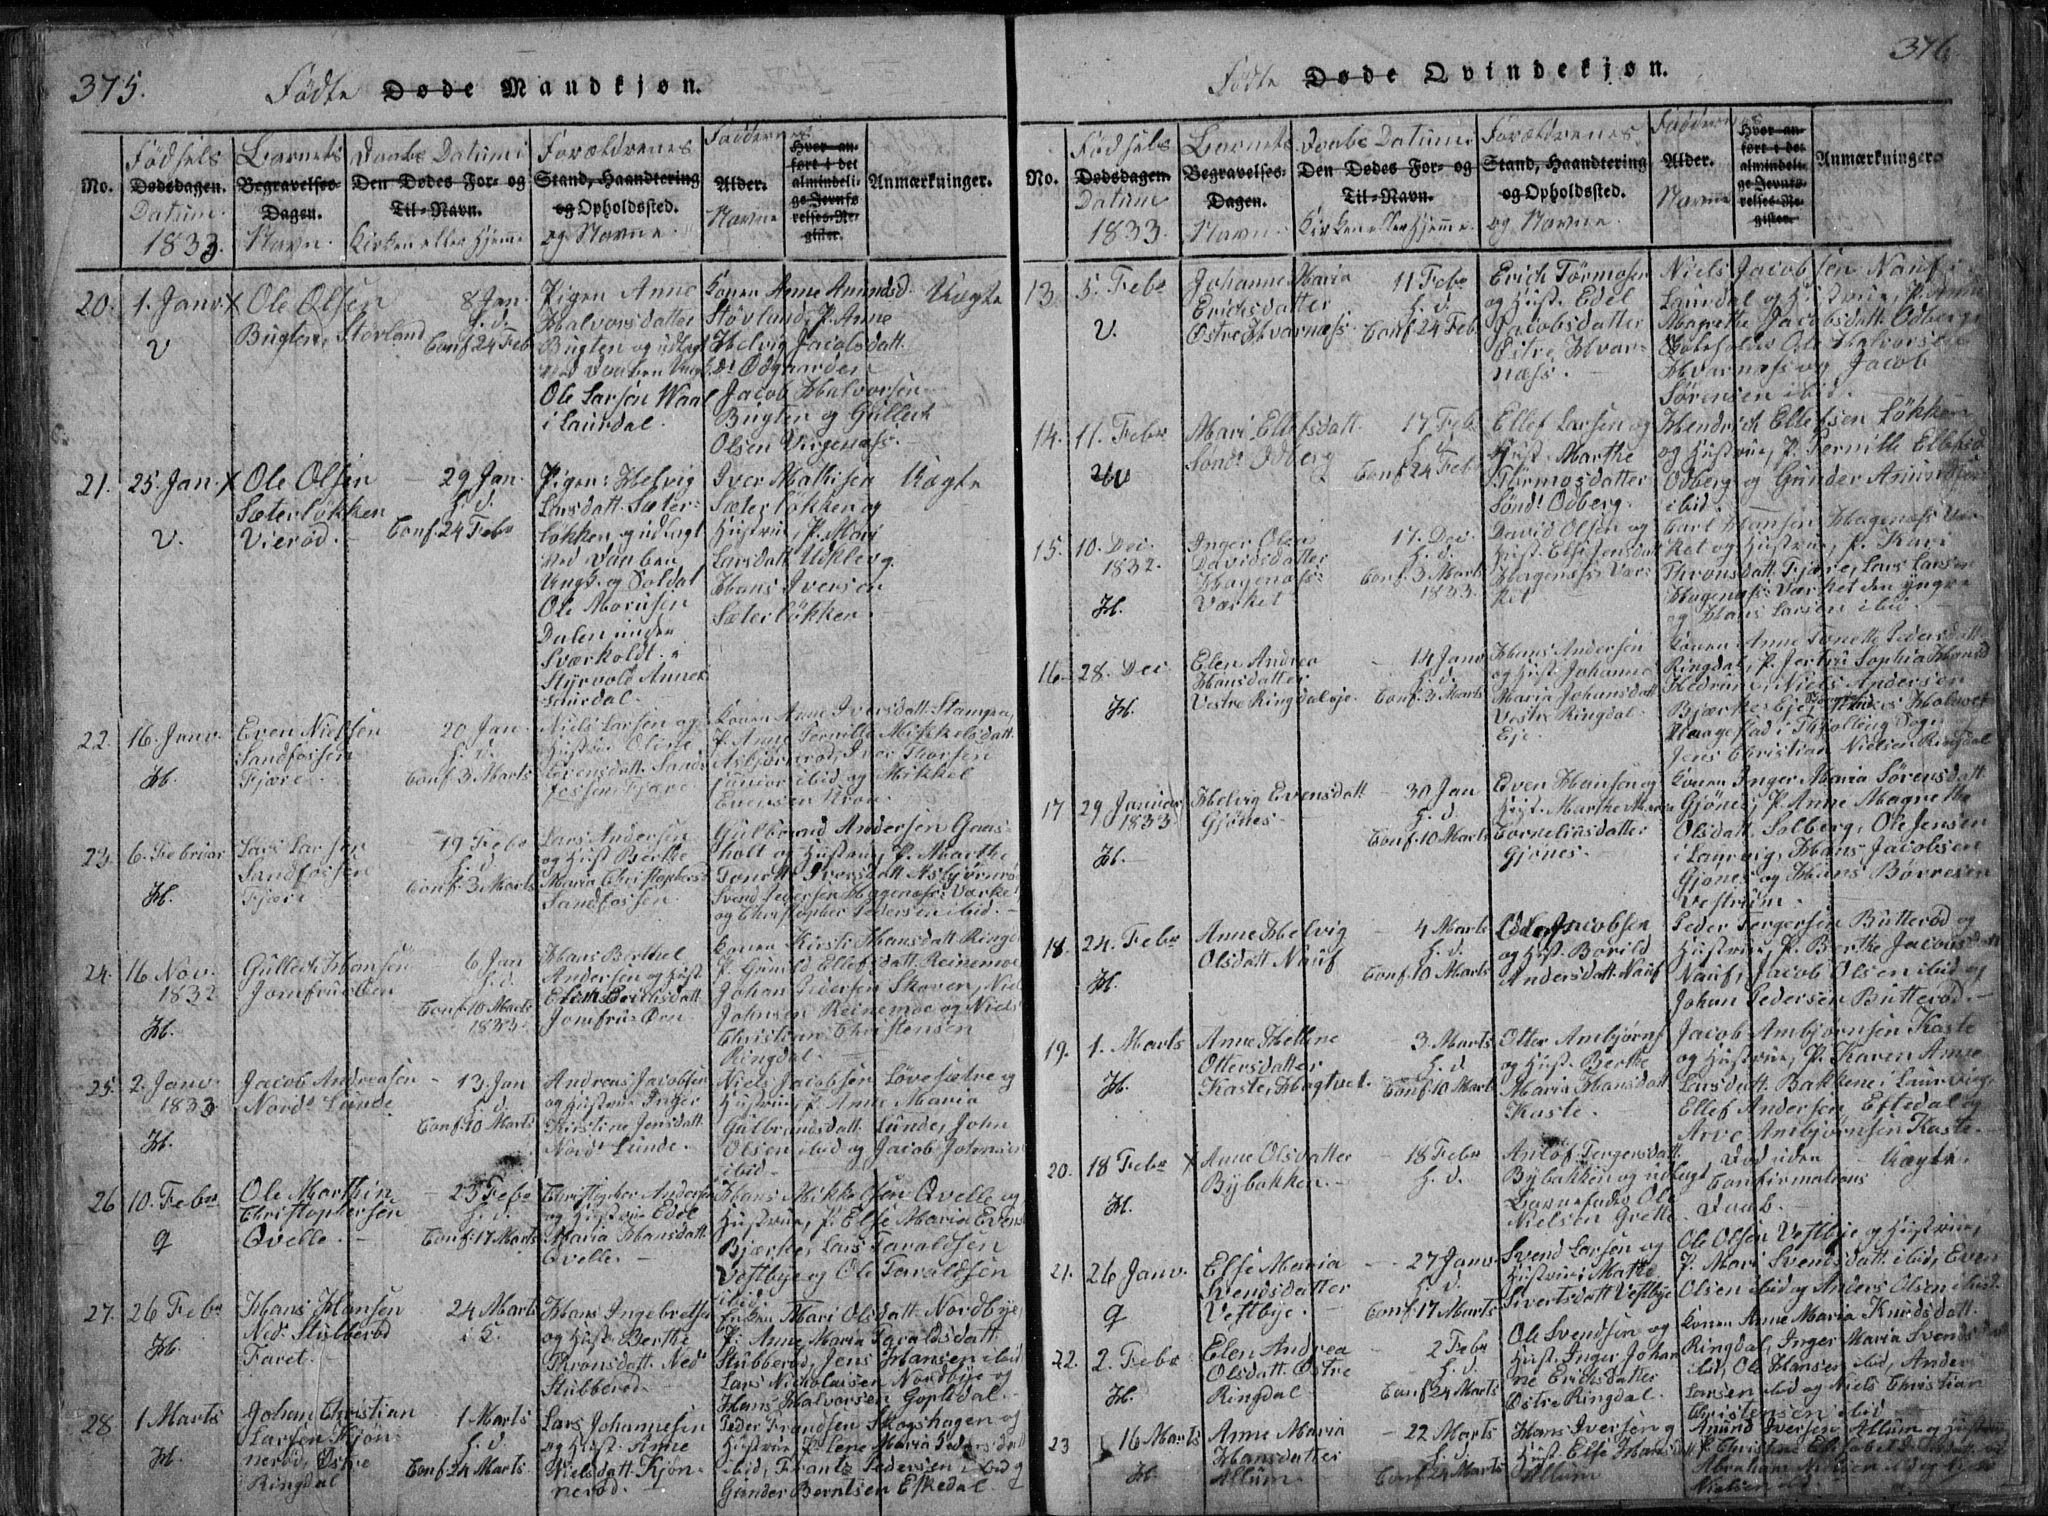 375.
Fødte Døde Mandkjøn.
No.
Fødsels
Dødsdagen.
Datum
1833
Barnets
Begravelses-
Dagen.
Navn.
Daabs Datum i
Den Dødes For- og
Til-Navn.
Kirken eller Hjemme
Forældrenes
Stand, Haandtering
og Opholdssted.
og Navne
Faddernes
Alder.
Navne
Hvor an-
ført i det
almindeli-
ge Jevnfø-
relses-Re-
gister.
Anmærkninger.
20.
1. Janv.
V
X Ole Olsen
Bugten, Støvland
8 Jan.
h. d.
Conf. 24 Feb
Pigen Anne
Halvorsdatter
Bugten og udlagt
Ole Larsen Waal
i Laurdal.
Konen Anne Amundsd.
Støvland, P. Anne
Helvig Jacobsdatt.
Odgaarden
Jacob Halvorsen
Bugten og Gullich
Olsen Virgenæss.
Uægte
21.
25. Jan.
V.
X Ole Olsen
Sæterløkken
Vierød.
29 Jan.
h. d.
Conf. 24 Febr
Pigen Helvig
Larsdatt. Sæter-
løkken og udlagt
ved Daaben
Ungk. og Soldat
Ole Morisen
Dalen under
Sværholdt
Styrvold Annex
Laurdal.
Iver Mathisen
Sæterløkken og
Hustrue, P. Mari
Larsdatt. Udkleng
Hans Iversen
Sæterløkken.
Uægte
22.
16. Janv.
H.
Even Nielsen
Sandfossen
Fjære.
20 Jan.
h. d.
Conf. 3 Marts
Niels Larsen og
Hustrue Oline
Evensdatt. Sand-
fossen Fjære.
Konen Anne Iversdatt. Stampen,
P. Anne Pernille Mikkelsdatt.
Asbjørnrød, Iver Thorsen
junior ibid og Mikkel
Evensen Kroa
23.
6. Februar
H.
Lars Larsen
Sandfossen
Fjære
19 Febr
h. d.
Conf. 3 Marts
Lars Andersen
og Hust. Berthe
Maria Christophersd.
Sandfossen.
Gulbrand Andersen Gaas-
holt og Hustrue, P. Marthe
Tonette Iversdatt. Asbjørnrød
Svend Pedersen Hagenæss Værket
og Christopher Pedersen ibid.
24.
16 Nov.
1832
H.
Gullich Hansen
Jomfrueøen
6 Jan
h. d.
Conf. 10 Marts
1833.
Hans Berthel
Andersen og Hust.
Erichsdatt.
Jomfrue Øen.
Konen Kirsti Hansdatt. Ringd
P. Gunild Ellefsdatt. Reinemoe
Johan Pedersen Skoven, Nils
Johnsen Reinemoe og Niels
Christian Christensen
Ringdal.
25.
2. Janv.
1833
H.
Jacob Andreasen
Nord. Lunde
13. Jan
h. d.
Conf. 10 Marts
Andreas Jacobsen
og Hustrue Inger
Kirstine Jensdatt.
Nord. Lunde.
Niels Jacobsen Løvesætre og
Hustrue, P. Anne Maria
Gulbrandsdatt. Lunde, John
Olsen ibid og Jacob Johnsen
ibid.
26
10. Febr
9
Ole Marthin
Christophersen
Qvelle.
23 Febr
h. d.
Conf. 17 Marts
Christopher Andersen
og Hustrue Edel
Maria Hansdatt.
Qvelle.
Hans Mikkelsen Qvelle og
Hustrue, P. Else Maria Evens
Bjærke, Lars Taraldsen
Vestbye og Ole Taraldsen
ibid.
27.
26 Febr
H.
Hans Hansen
Ned. Stubberød
Faret.
24 Marts
i K.
Hans Ingebretsen
og Hust. Berthe
Thronsdatt. Ned.
Stubberød.
Enken Mari Olsdatt. Nordbye
P. Anne Maria Taraldsdatt.
Stubberød, Jens Hansen ibid
Lars Nicholaisen Nordbye og
Hans Halvorsen Gopledal.
28
1 Marts
H.
Johan Christian
Larsen Kjøn-
nerød, Østre
Ringdal
1 Marts
h. d.
Conf. 24 Marts
Lars Johannesen
og Hust. Anne
Nielsdatt. Kjøn-
nerød.
Peder Frandsen Skogshagen og
Hustrue, P. Lene Maria Pedersdatt
ibid, Frants Pedersen ibid og
Gunder Berntsen Eskedal
376
Fødte Døde Qvindekjøn.
No.
Fødsels
Dødsdagen.
Datum
1833.
Barnets
Begravelses-
Dagen.
Navn.
Daabs Datum i
Den Dødes For- og
Til-Navn.
Kirken eller Hjemme.
Forældrenes
Stand, Haandtering
og Opholdssted.
og Navne
Faddernes
Alder.
Navne
Hvor an-
ført i det
almindeli-
ge Jevnfø-
relses-Re-
gister.
Anmærkninger.
13
5. Febr
V.
Johanne Maria
Erichsdatter
Østre Hvarnæss
11 Febr
h. d.
Conf 24 Feb
Erich Tørmosen
og Hust. Edel
Jacobsdatter
Østre Hvar-
næss.
Niels Jacobsen Nauf i
Laurdal og Hustrue, P. Anne
Magrethe Jacobsdatt. Odberg,
Ole Halvorsen
Hvarnæss og Jacob
Sørensen ibid.
14.
11. Febr
V
Mari Ellefsdatt.
Sønd. Odberg
17 Feb
h. d.
Conf 24 Febr
Ellef Larsen og
Hust. Marthe
Tørmosdatter
Sønd. Odberg.
Hendrich Ellefsen Løkken
og Hustrue, P. Pernille Ellefsd
Odberg og Gunder Amundsen
ibid.
15.
10. Dec.
1832.
H.
Inger Olea
Davidsdatter
Hagenæss-
Værket
17. Dec.
h. d.
Conf. 3 Marts
1833.
David Olsen og
Hust. Else Jensdatt
Hagenæss Vær-
ket
Carl Hansen Hagenæss Vær
ket og Hustrue, P. Kari
Thronsdatt. Fjære, Lars Larsen
Hagenæss Værket den yngre
og Hans Larsen ibid.
16
28. Dec
H.
Elen Andrea
Hansdatter
Vestre Ringdal eje
14 Janv
h. d.
Conf. 3 Marts
Hans Andersen
og Hust. Johanne
Maria Johansdatt
Vestre Ringdal
Eje.
Konen Anne Tonette Pedersdatt
Ringdal, P. Jertru Sophia Hansd
Hedrum, Niels Andersen
Bjærke Eje, Halvor
Haugestad i Thjølling Sogn
Jens Christian Nielsen Ringdal
17
29 Januar
1833
H.
Helvig Evensdatt.
Gjønes
30 Jan
h. d.
Conf. 10 Marts
Even Hansen og
Hust. Marthe Maria
Corneliusdatter
Gjønes.
Konen Inger Maria Sørensdatt
Gjønes, P. Anne Magrethe
Olsdatt. Solberg, Ole Jensen
i Laurvig, Hans Jacobsen
Gjønes og Hans Børresen
Vestrum.
18.
24. Febr
H.
Anne Helvig
Olsdatt. Nauf
4 Marts
h. d.
Conf. 10 Marts
Ole Jacobsen
og Hust. Borild
Andersdatt. Nauf
Peder Tergersen Butterød og
Hustrue, P. Berthe Jacobsdatt
Nauf, Jacob Olsen ibid og
Johan Pedersen Butterød.
19.
1. Marts
H.
Anne Helline
Ottersdatter
Kaste, Hogtvet.
3. Marts
h. d.
Conf. 10 Marts
Otter Ambjørns
og Hust. Berthe
Maria Hansdatt
Kaste.
Jacob Ambjørnsen Kaste
og Hustrue, P. Karen Anne
Larsdatt. Bakkene i Laurvig,
Ellef Andersen, Eftedal og
Arve Ambjørnsen Kaste.
20.
18 Febr
H.
X Anne Olsdatter
Bybakken.
18 Febr
h. d.
Anløf Tergensdatt.
Bybakken og udlagt
Barnefader Ole
Nielsen Grette.
Død uden
Confirmations
Daab.
Uægte.
21.
26 Janv.
9
Else Maria
Svendsdatter
Vestbye.
27 Janv
h. d.
Conf. 17 Marts
Svend Larsen og
Hustrue Mathe
Sivertsdatt Vestbye
Ole Olsen Vestbye og Hustrue,
P. Mari Svendsdatt. ibid, Even
Olsen ibid og Anders Olsen ibid.
22.
2. Febr
H.
Elen Andrea
Olsdatt. Østre
Ringdal
2 Febr
h. d.
Conf 24 Marts
Ole Svendsen og
Hust. Inger Johan
ne Erichsdatter
Østre Ringdal.
Konen Anne Maria Knudsdatt.
Ringdal, Inger Maria Svends
ibid, Ole Hansen ibid, Anders
Larsen ibid og Niels Christian
Christensen ibid
23
16 Marts
H
Anne Maria
Hansdatter
Allum.
22 Marts
h. d.
Conf 24 Marts
Hans Iversen og
Hust. Else Hansdatt
Allum
Amund Iversen Allum og Hustrue
P. Christine Elisabeth
Abraham Nielsen ibid og
Nielsen ibid.